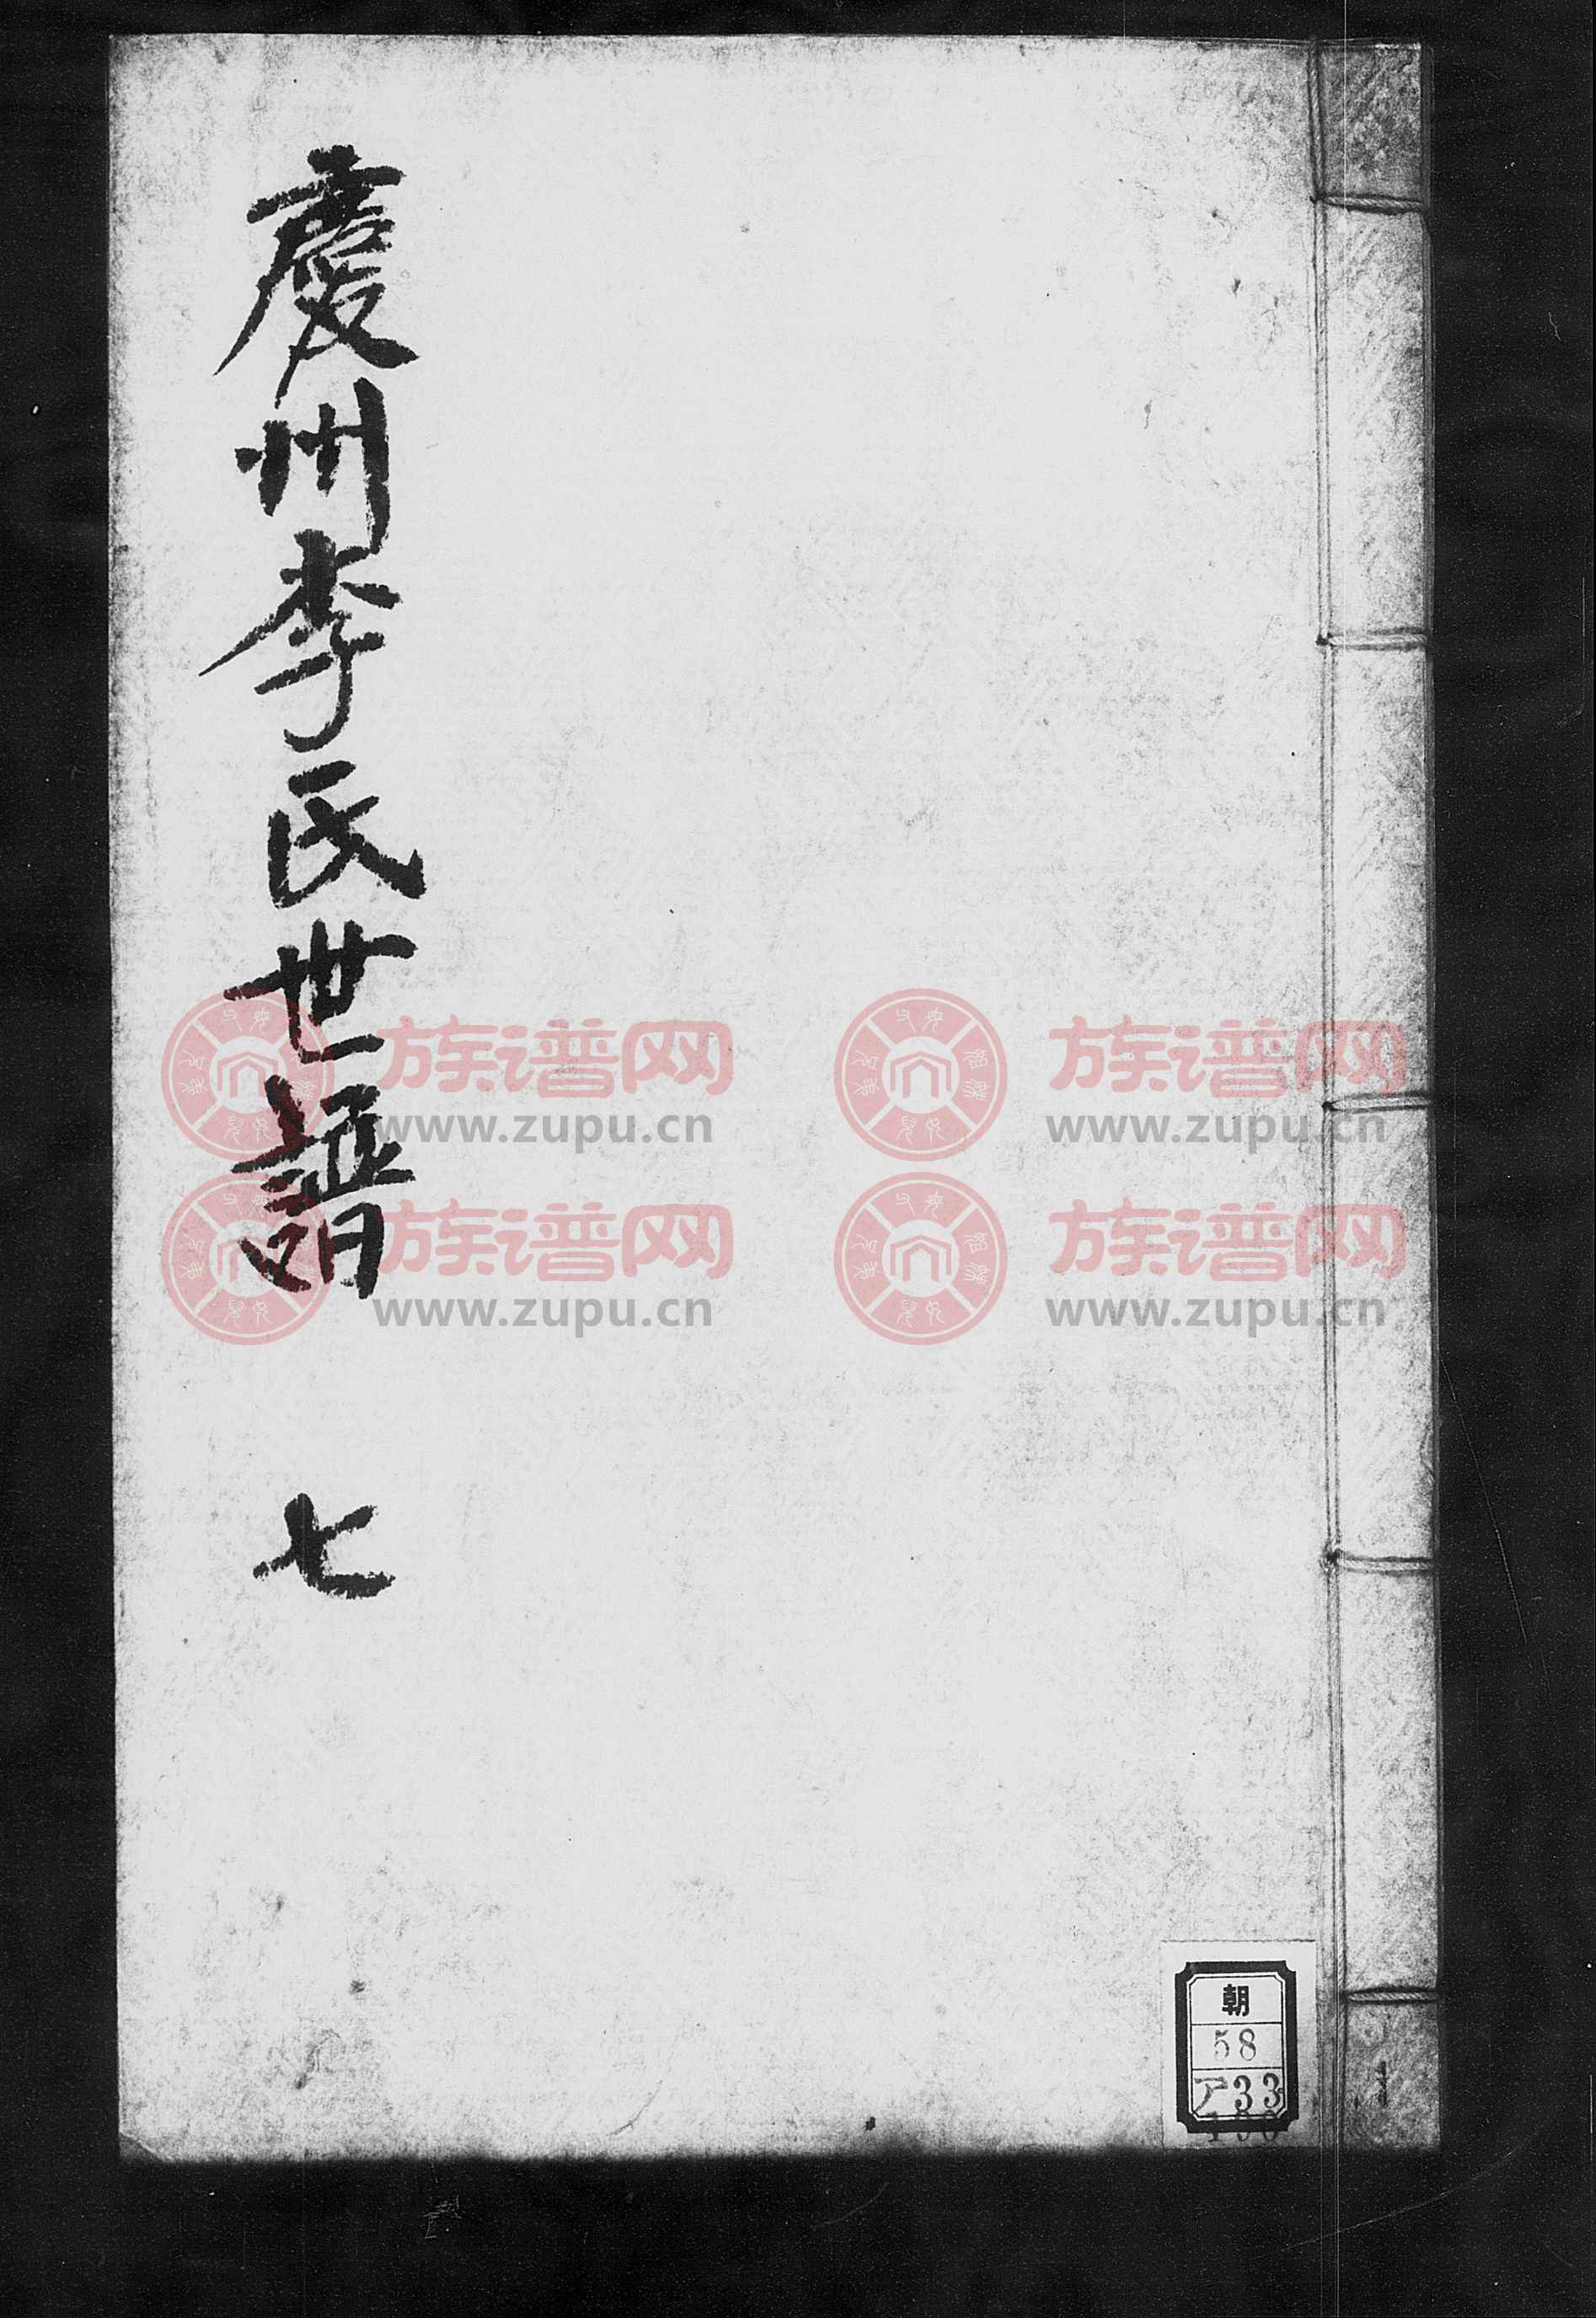 慶州李氏世譜 七
族谱网
www.zupu.cn
族谱网
www.zupu.cn
族谱网
www.zupu.cn
族谱网
www.zupu.cn
朝
58
ア33